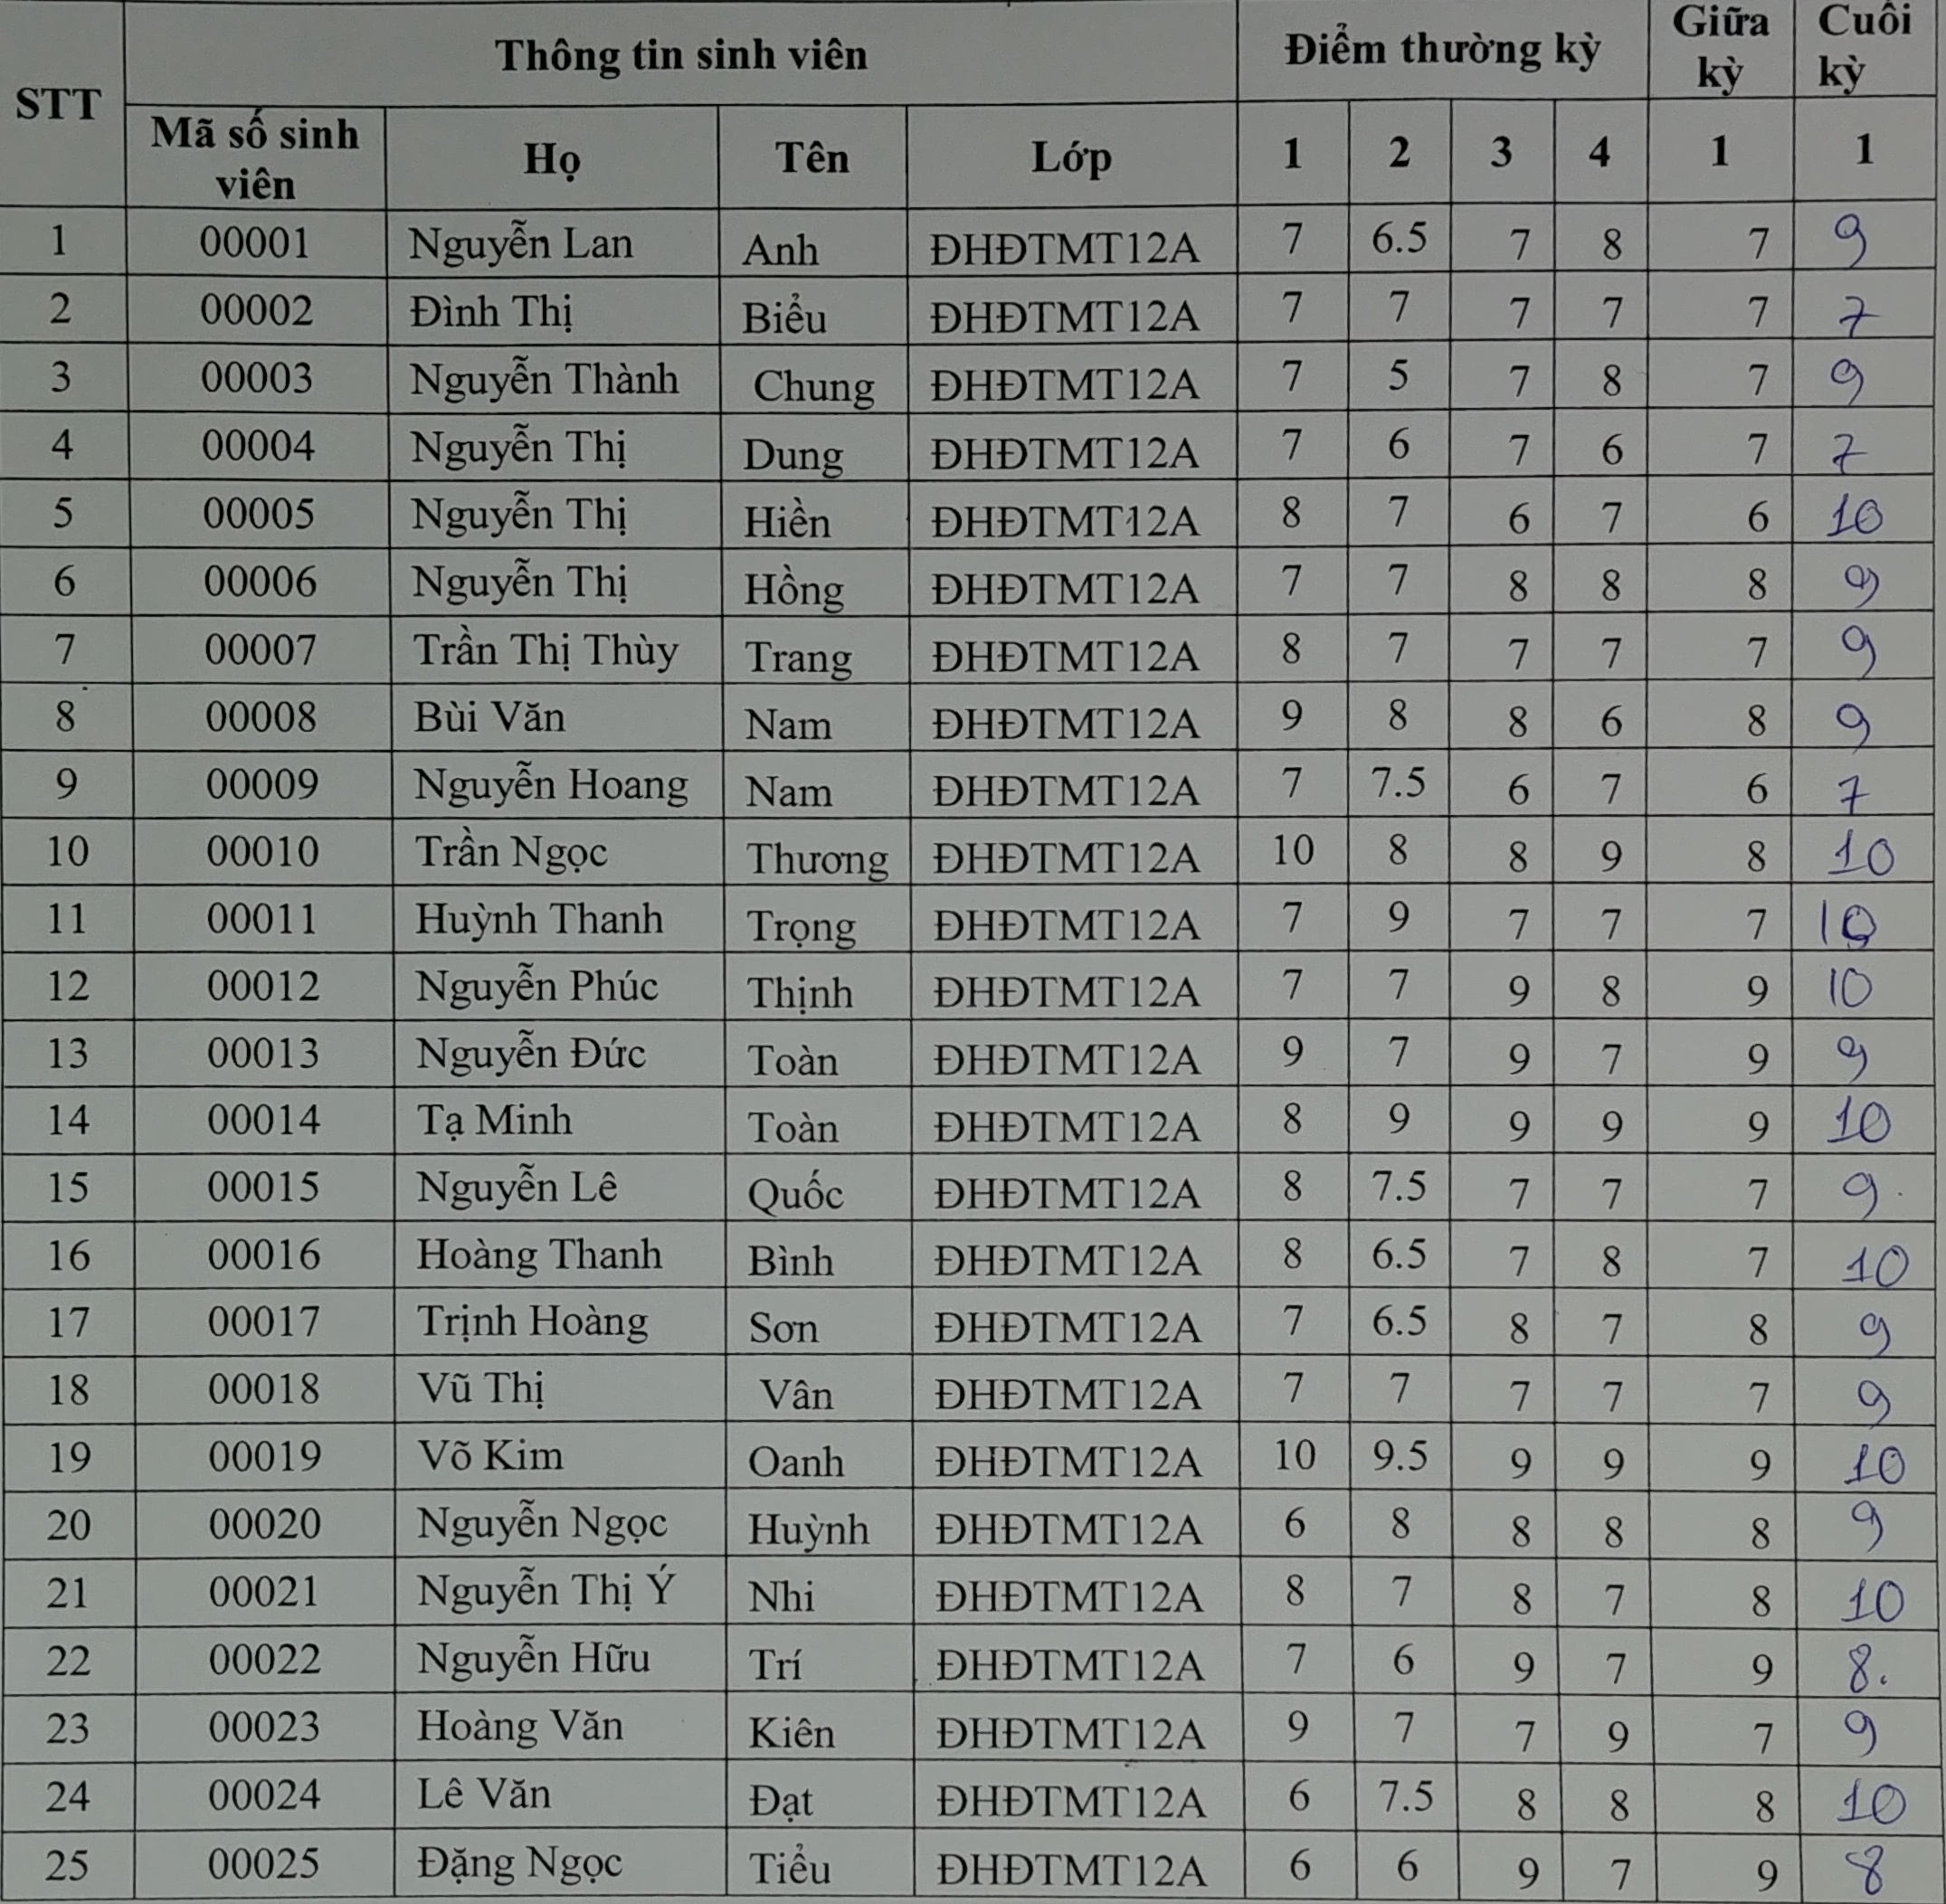 STT Thông tin sinh viên Điểm thường kỳ Giữa kỳ Cuối kỳ
Mã số sinh viên Họ Tên Lớp 1 2 3 4 1 1
1 00001 Nguyễn Lan Anh ĐHĐTMT12A 7 6.5 7 8 7 9
2 00002 Đình Thị Biểu ĐHĐTMT12A 7 7 7 7 7 7
3 00003 Nguyễn Thành Chung ĐHĐTMT12A 7 5 7 8 7 9
4 00004 Nguyễn Thị Dung ĐHĐTMT12A 7 6 7 6 7 7
5 00005 Nguyễn Thị Hiền ĐHĐTMT12A 8 7 6 7 6 10
6 00006 Nguyễn Thị Hồng ĐHĐTMT12A 7 7 8 8 8 9
7 00007 Trần Thị Thùy Trang ĐHĐTMT12A 8 7 7 7 7 9
8 00008 Bùi Văn Nam ĐHĐTMT12A 9 8 8 6 8 9
9 00009 Nguyễn Hoang Nam ĐHĐTMT12A 7 7.5 6 7 6 7
10 00010 Trần Ngọc Thương ĐHĐTMT12A 10 8 8 9 8 10
11 00011 Huỳnh Thanh Trọng ĐHĐTMT12A 7 9 7 7 7 10
12 00012 Nguyễn Phúc Thịnh ĐHĐTMT12A 7 7 9 8 9 10
13 00013 Nguyễn Đức Toàn ĐHĐTMT12A 9 7 9 7 9 9
14 00014 Tạ Minh Toàn ĐHĐTMT12A 8 9 9 9 9 10
15 00015 Nguyễn Lê Quốc ĐHĐTMT12A 8 7.5 7 7 7 9
16 00016 Hoàng Thanh Bình ĐHĐTMT12A 8 6.5 7 8 7 10
17 00017 Trịnh Hoàng Sơn ĐHĐTMT12A 7 6.5 8 7 8 9
18 00018 Vũ Thị Vân ĐHĐTMT12A 7 7 7 7 7 9
19 00019 Võ Kim Oanh ĐHĐTMT12A 10 9.5 9 9 9 10
20 00020 Nguyễn Ngọc Huỳnh ĐHĐTMT12A 6 8 8 8 8 9
21 00021 Nguyễn Thị Ý Nhi ĐHĐTMT12A 8 7 8 7 8 10
22 00022 Nguyễn Hữu Trí ĐHĐTMT12A 7 6 9 7 9 8.
23 00023 Hoàng Văn Kiên ĐHĐTMT12A 9 7 7 9 7 9
24 00024 Lê Văn Đạt ĐHĐTMT12A 6 7.5 8 8 8 10
25 00025 Đặng Ngọc Tiểu ĐHĐTMT12A 6 6 9 7 9 8